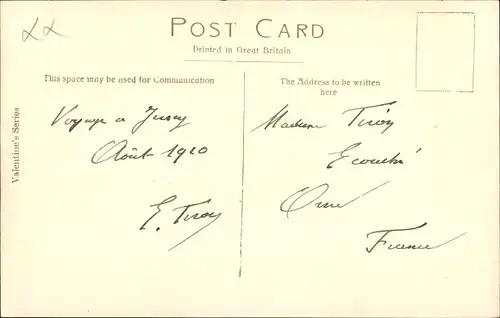 POST CARD
Printed in Great Britain
This space may be used for Communication
The Address to be written
here
Valentine's Series
Voyage a Jersey
Août 1910
E. Tiroy
Madame Tiroy
Ecouché
Orne
France